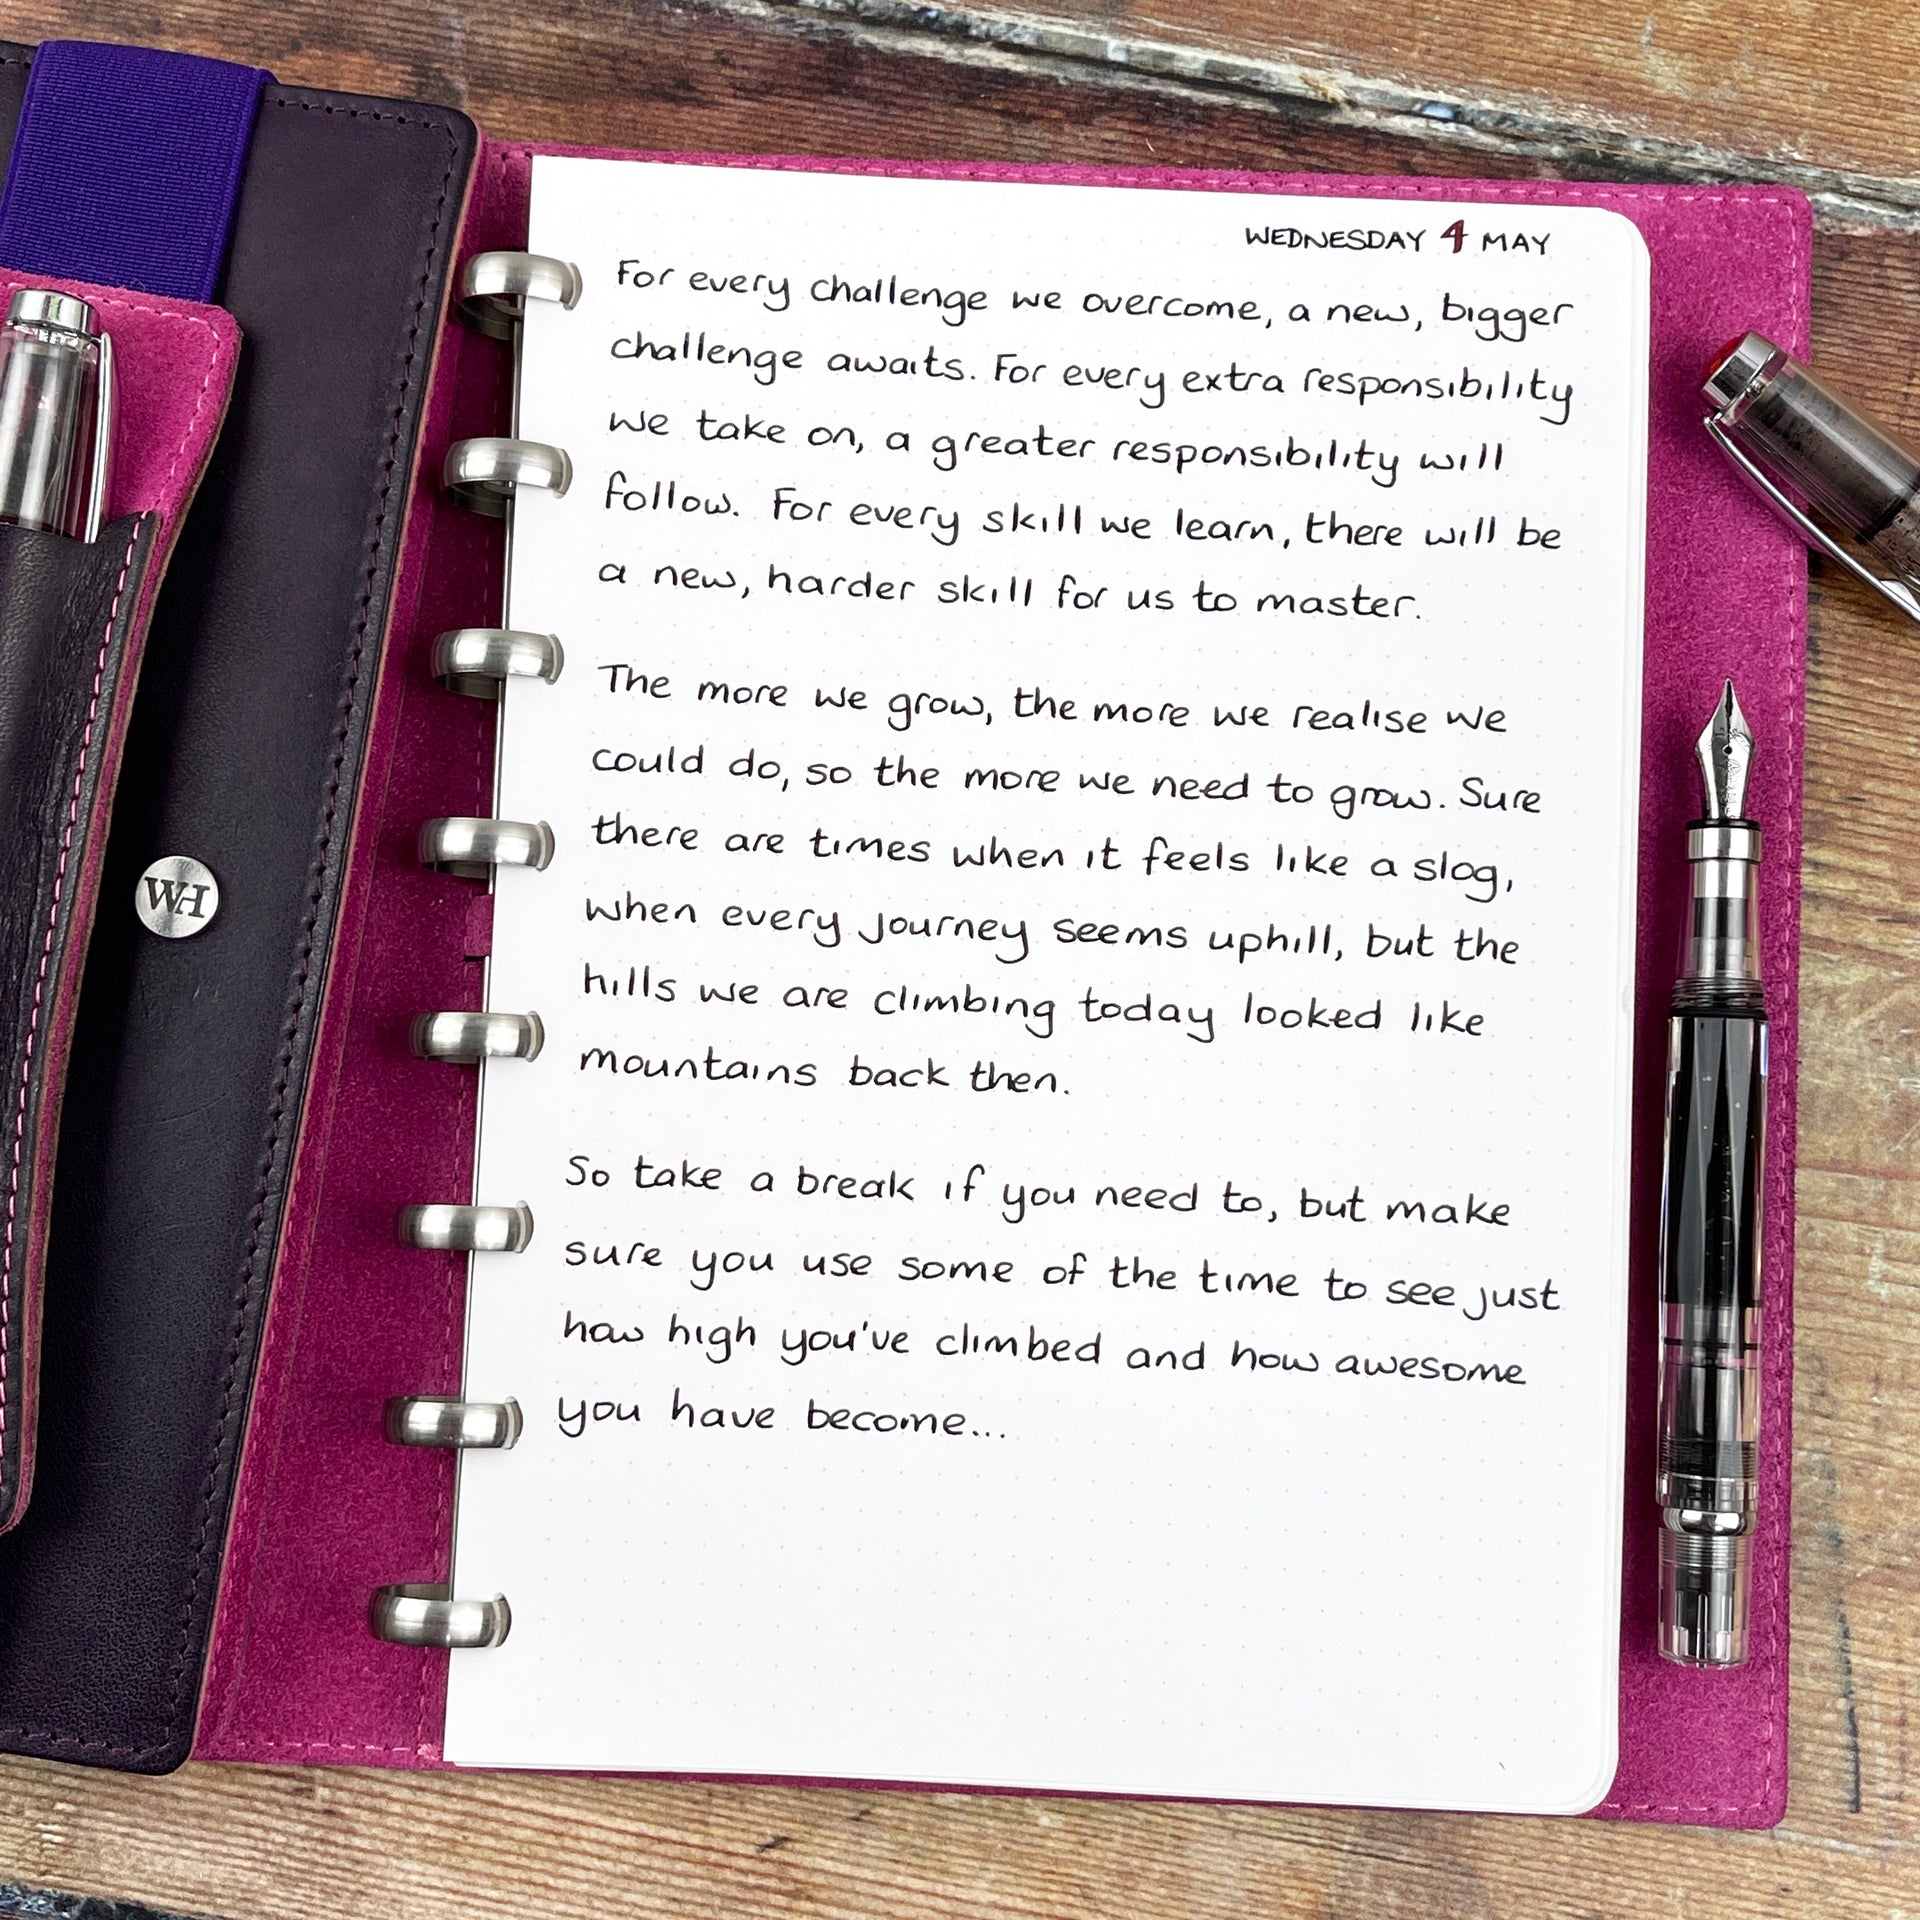 WEDNESDAY 4 MAY
For every challenge we overcome, a new, bigger
challenge awaits. For every extra responsibility
we take on, a greater responsibility will
follow. For every skill we learn, there will be
a new, harder skill for us to master.
The more we grow, the more we realise we
could do, so the more we need to grow. Sure
there are times when it feels like a slog,
when every journey seems uphill, but the
hills we are climbing today looked like
mountains back then.
So take a break if you need to, but make
sure you use some of the time to see just
how high you've climbed and how awesome
you have become...
WH